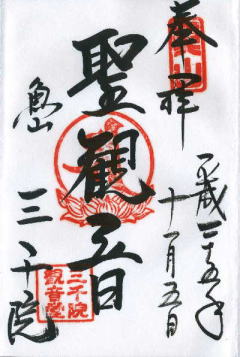 奉拝
平成二十五年
十一月五日
聖観音
魚山
三千院
三千院
観音堂